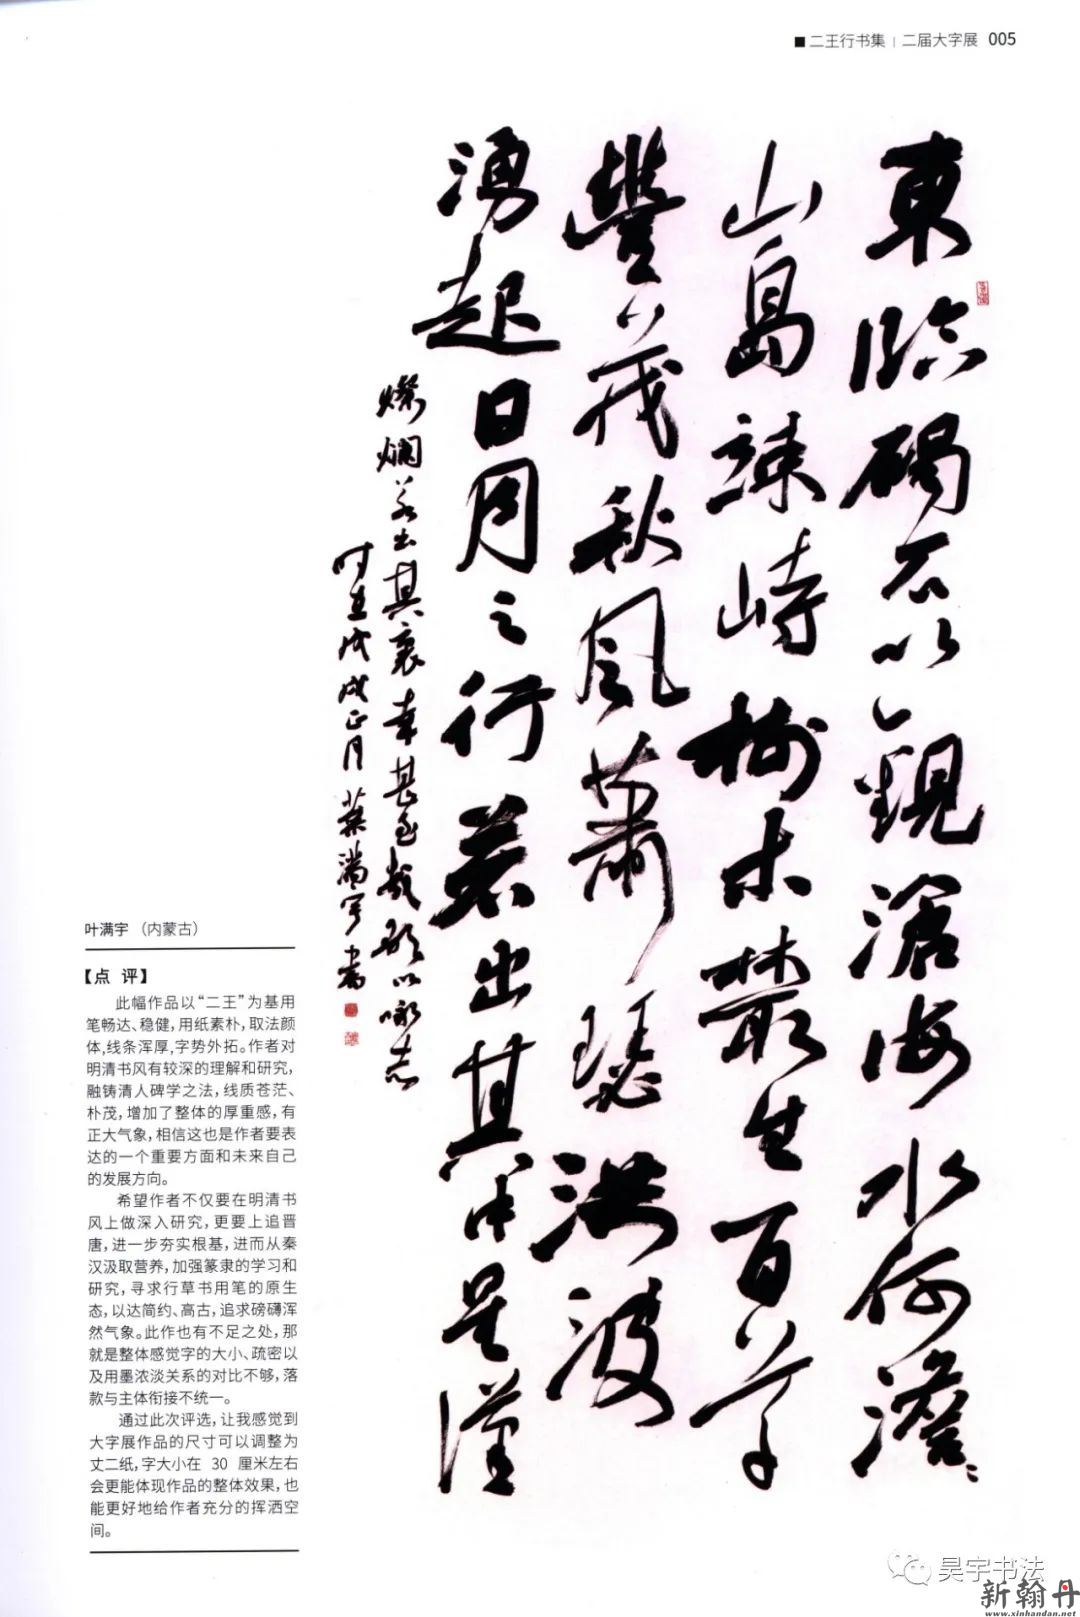 ■二王行书集 | 二届大字展 005
東臨碣石以觀滄海水何澹〻
山島竦峙樹木叢生百草
豐茂秋風蕭瑟洪波
湧起日月之行若出其中星漢
燦爛若出其裏幸甚至哉歌以咏志
时在戊戌正月葉滿宇書
叶满宇（内蒙古）
【点 评】
此幅作品以“二王”为基用
笔畅达、稳健，用纸素朴，取法颜
体，线条浑厚，字势外拓。作者对
明清书风有较深的理解和研究，
融铸清人碑学之法，线质苍茫、
朴茂，增加了整体的厚重感，有
正大气象，相信这也是作者要表
达的一个重要方面和未来自己
的发展方向。
希望作者不仅要在明清书
风上做深入研究，更要上追晋
唐，进一步夯实根基，进而从秦
汉汲取营养，加强篆隶的学习和
研究，寻求行草书用笔的原生
态，以达简约、高古，追求磅礴浑
然气象。此作也有不足之处，那
就是整体感觉字的大小、疏密以
及用墨浓淡关系的对比不够，落
款与主体衔接不统一。
通过此次评选，让我感觉到
大字展作品的尺寸可以调整为
丈二纸，字大小在 30 厘米左右
会更能体现作品的整体效果，也
能更好地给作者充分的挥洒空
间。
昊宇书法
新翰丹
www.xinhandan.net